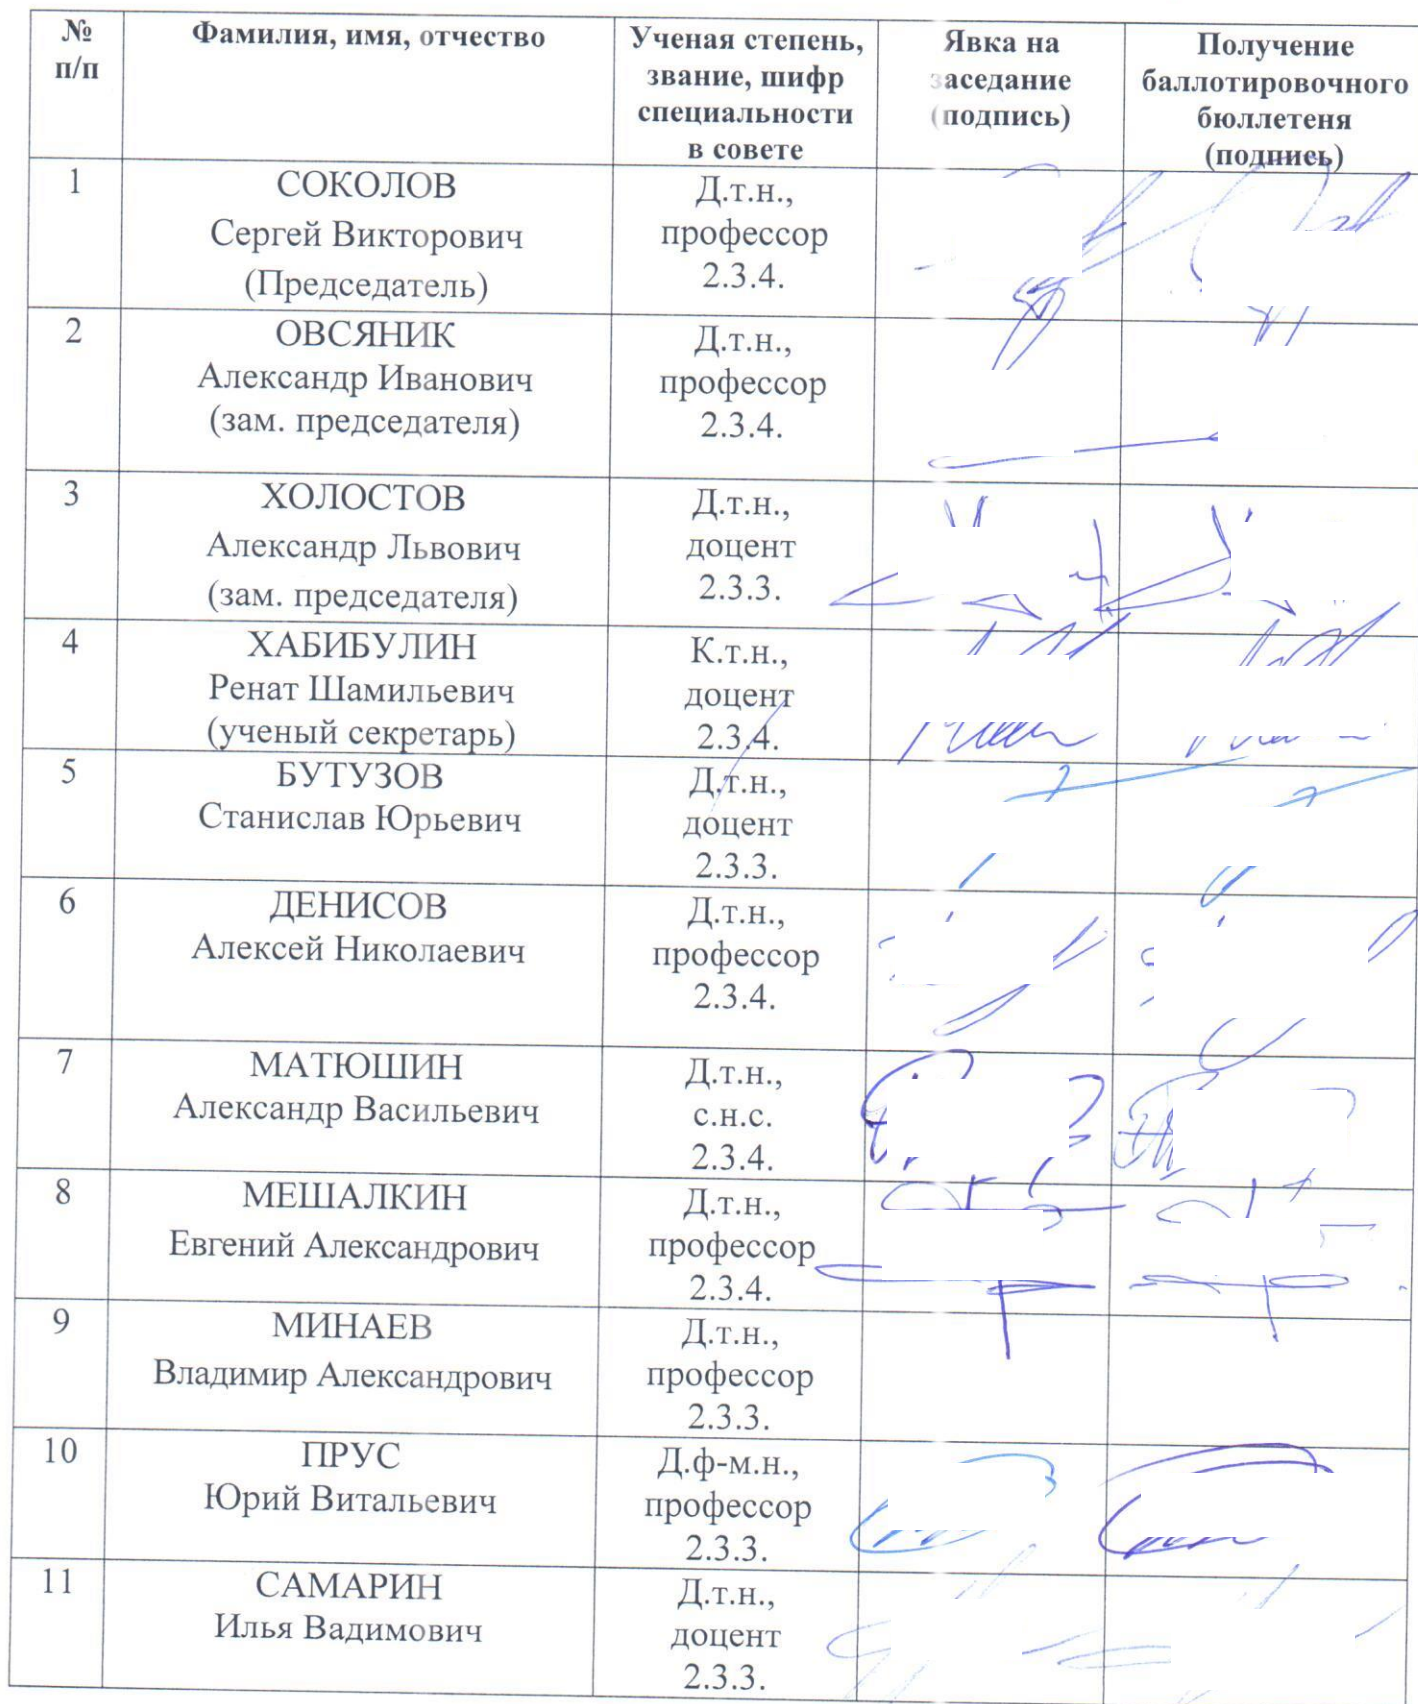 № п/п
Фамилия, имя, отчество
Ученая степень, звание, шифр специальности в совете
Явка на заседание (подпись)
Получение баллотировочного бюллетеня (подпись)
1
СОКОЛОВ
Сергей Викторович
(Председатель)
Д.т.н.,
профессор
2.3.4.
2
ОВСЯНИК
Александр Иванович
(зам. председателя)
Д.т.н.,
профессор
2.3.4.
3
ХОЛОСТОВ
Александр Львович
(зам. председателя)
Д.т.н.,
доцент
2.3.3.
4
ХАБИБУЛИН
Ренат Шамильевич
(ученый секретарь)
К.т.н.,
доцент
2.3.4.
5
БУТУЗОВ
Станислав Юрьевич
Д.т.н.,
доцент
2.3.3.
6
ДЕНИСОВ
Алексей Николаевич
Д.т.н.,
профессор
2.3.4.
7
МАТЮШИН
Александр Васильевич
Д.т.н.,
с.н.с.
2.3.4.
8
МЕШАЛКИН
Евгений Александрович
Д.т.н.,
профессор
2.3.4.
9
МИНАЕВ
Владимир Александрович
Д.т.н.,
профессор
2.3.3.
10
ПРУС
Юрий Витальевич
Д.ф-м.н.,
профессор
2.3.3.
11
САМАРИН
Илья Вадимович
Д.т.н.,
доцент
2.3.3.